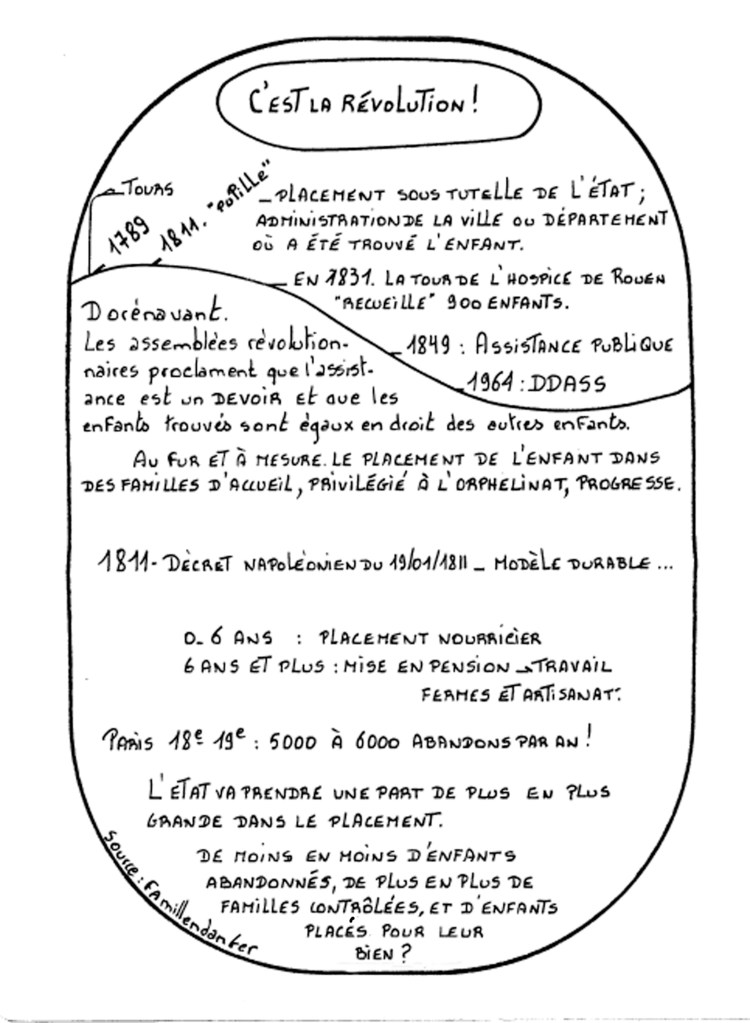 C'EST LA RÉVOLUTION !
TOURS
1789
1811. "PUPILLE"
_ PLACEMENT SOUS TUTELLE DE L'ÉTAT ;
ADMINISTRATION DE LA VILLE OU DÉPARTEMENT
OÙ A ÉTÉ TROUVÉ L'ENFANT.
_ EN 1831. LA TOUR DE L'HOSPICE DE ROUEN
"RECUEILLE" 900 ENFANTS.
1849 : ASSISTANCE PUBLIQUE
1964 : DDASS
Dorénavant.
Les assemblées révolution-
naires proclament que l'assist-
ance est un DEVOIR et que les
enfants trouvés sont égaux en droit des autres enfants.
AU FUR ET À MESURE. LE PLACEMENT DE L'ENFANT DANS
DES FAMILLES D'ACCUEIL, PRIVILÉGIÉ À L'ORPHELINAT, PROGRESSE.
1811- DÉCRET NAPOLÉONIEN DU 19/01/1811 _ MODÈLE DURABLE ...
0_ 6 ANS : PLACEMENT NOURRICIER
6 ANS ET PLUS : MISE EN PENSION → TRAVAIL
FERMES ET ARTISANAT.
PARIS 18e 19e : 5000 À 6000 ABANDONS PAR AN !
L'ETAT VA PRENDRE UNE PART DE PLUS EN PLUS
GRANDE DANS LE PLACEMENT.
DE MOINS EN MOINS D'ENFANTS
ABANDONNÉS, DE PLUS EN PLUS DE
FAMILLES CONTRÔLÉES, ET D'ENFANTS
PLACÉS POUR LEUR
BIEN ?
Source : Famillendanger